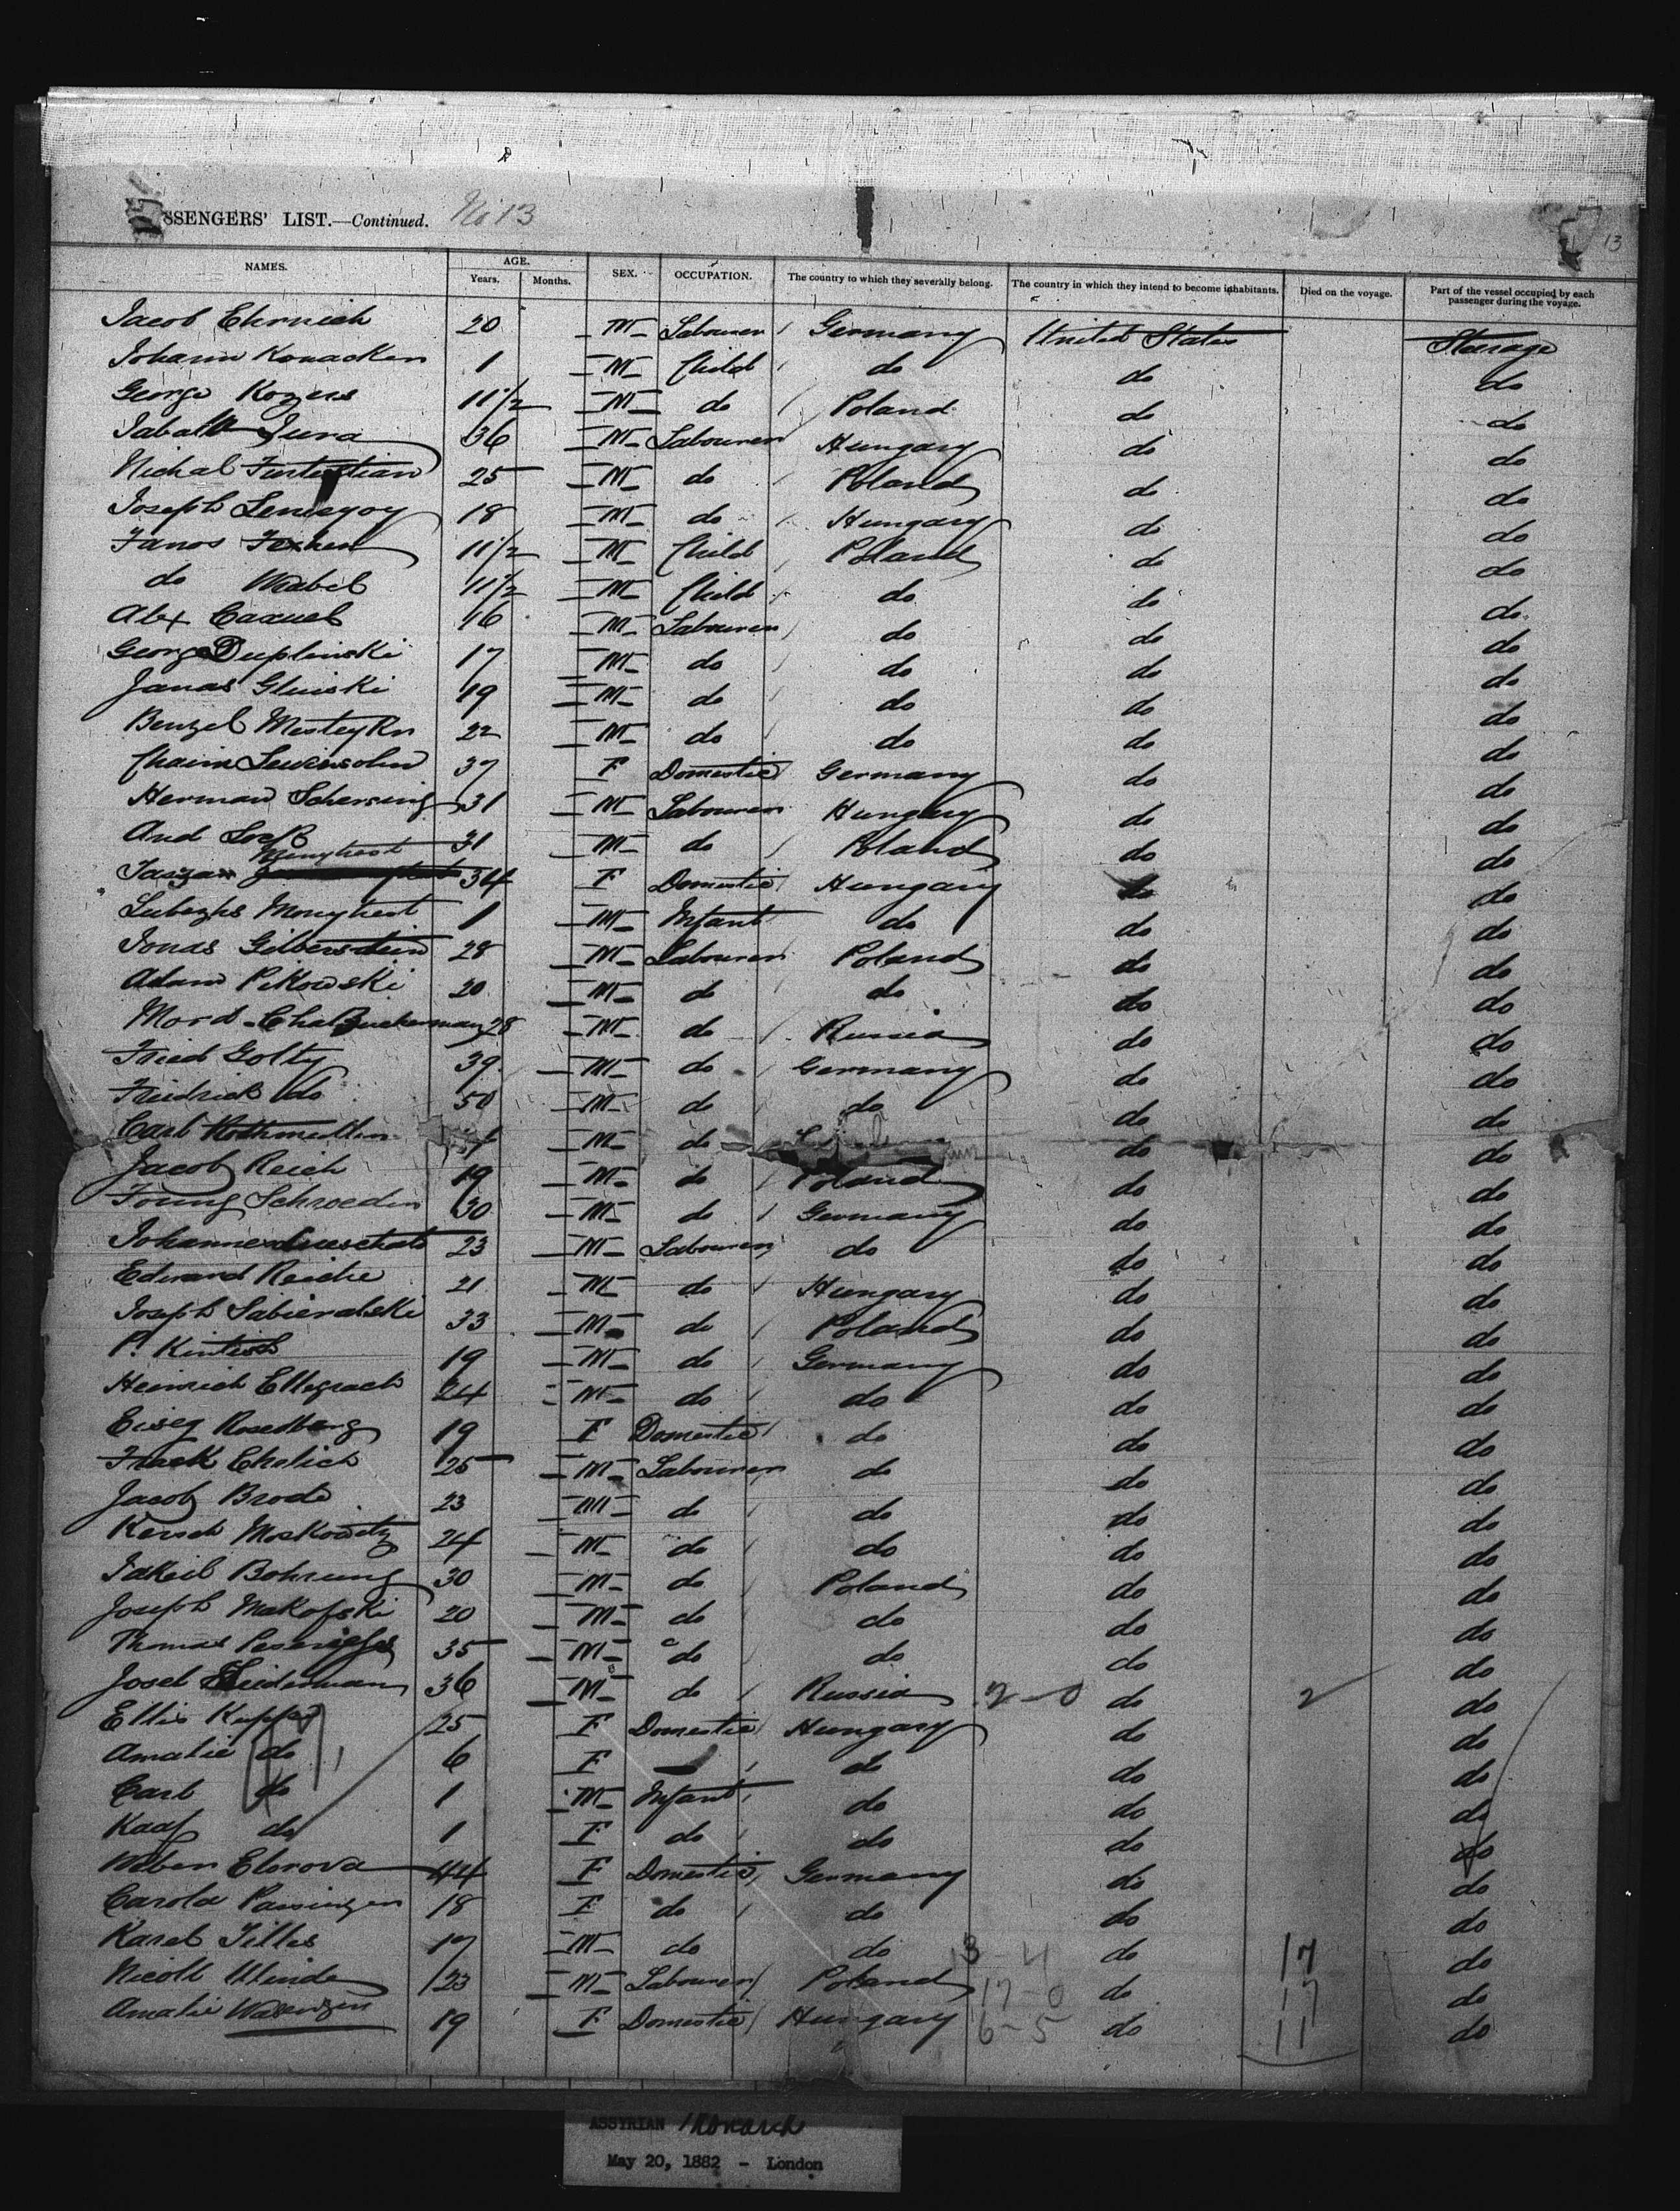 SSENGERS' LIST.—Continued. No 13
13
NAMES. AGE. Years. Months. SEX. OCCUPATION. The country to which they severally belong. The country in which they intend to become inhabitants. Died on the voyage. Part of the vessel occupied by each passenger during the voyage.
Jacob Ehrnich 20 M Labourer Germany United States Steerage
Johann Konacken 1 M Child do do do
George Kozjus 11/2 M do Poland do do
Jura 36 M Labourer Hungary do do
Michal 25 M do Poland do do
Joseph 18 M do Hungary do do
Janos 11/2 M Child Poland do do
do Mabel 11/2 M Child do do do
Alex 16 M Labourer do do do
George Duplinski 17 M do do do do
Janas Glinski 19 M do do do do
Benzel 22 M do do do do
Chaim Lewinsohn 37 F Domestic Germany do do
Herman Schersing 31 M Labourer Hungary do do
And 31 M do Poland do do
Menyhert
34 F Domestic Hungary do do
Menyhert 1 M Infant do do do
Jonas Gilberstein 28 M Labourer Poland do do
Adam Pikowski 20 M do do do do
Mord-Cha Zuckerman 28 M do Russia do do
Fried Golty 39 M do Germany do do
Fridrick do 50 M do do do do
Carl Rothmuller M do do do
Jacob Reich 19 M do Poland do do
Schroeder 30 M do Germany do do
Johannes 23 M Labourer do do do
Edward Reiche 21 M do Hungary do do
Joseph Sabieralski 33 M do Poland do do
P. Kintish 19 M do Germany do do
Heinrich Ellegrach 24 M do do do do
Eiseg Rosedberg 19 F Domestic do do do
Ehrlich 25 M Labourer do do do
Jacob Brode 23 M do do do do
Kersch Moskowitz 24 M do do do do
Jakeib Bohrung 30 M do Poland do do
Joseph Makofski 20 M do do do do
Thomas 35 M do do do do
Josel Liederman 36 M do Russia 2-0 do 2 do
Ellis Kupfer 25 F Domestic Hungary do do
Amalie do 6 F — do do do
Carl do 1 M Infant do do do
Kaaf do 1 F do do do do
Weber Elorova 44 F Domestic Germany do do
Carola Passinger 18 F do do do do
Karel Tilles 17 M do do 3-4 do 17 do
Nicoll Minde 23 M Labourer Poland 17-0 do 17 do
Amalie 19 F Domestic Hungary 6-5 do 11 do
ASSYRIAN Monarch
May 20, 1882 - London